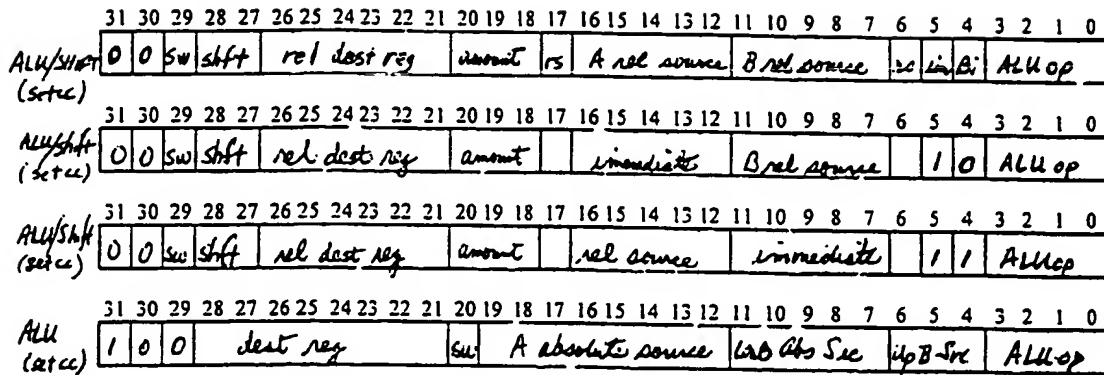 31 30 29 28 27 26 25 24 23 22 21 20 19 18 17 16 15 14 13 12 11 10 9 8 7 6 5 4 3 2 1 0
ALU/Shift 0 0 sw shft rel dest reg amount rs A rel source B rel source sc im Bi ALU op
(setcc)
31 30 29 28 27 26 25 24 23 22 21 20 19 18 17 16 15 14 13 12 11 10 9 8 7 6 5 4 3 2 1 0
ALU/shft 0 0 sw shft rel dest reg amount immediate B rel source 1 0 ALU op
(setcc)
31 30 29 28 27 26 25 24 23 22 21 20 19 18 17 16 15 14 13 12 11 10 9 8 7 6 5 4 3 2 1 0
ALU/Shft 0 0 sw shft rel dest reg amount rel source immediate 1 1 ALUop
(setcc)
31 30 29 28 27 26 25 24 23 22 21 20 19 18 17 16 15 14 13 12 11 10 9 8 7 6 5 4 3 2 1 0
ALU 1 0 0 dest reg sw A absolute source B Abs Src B-Src ALU-op
(setcc)